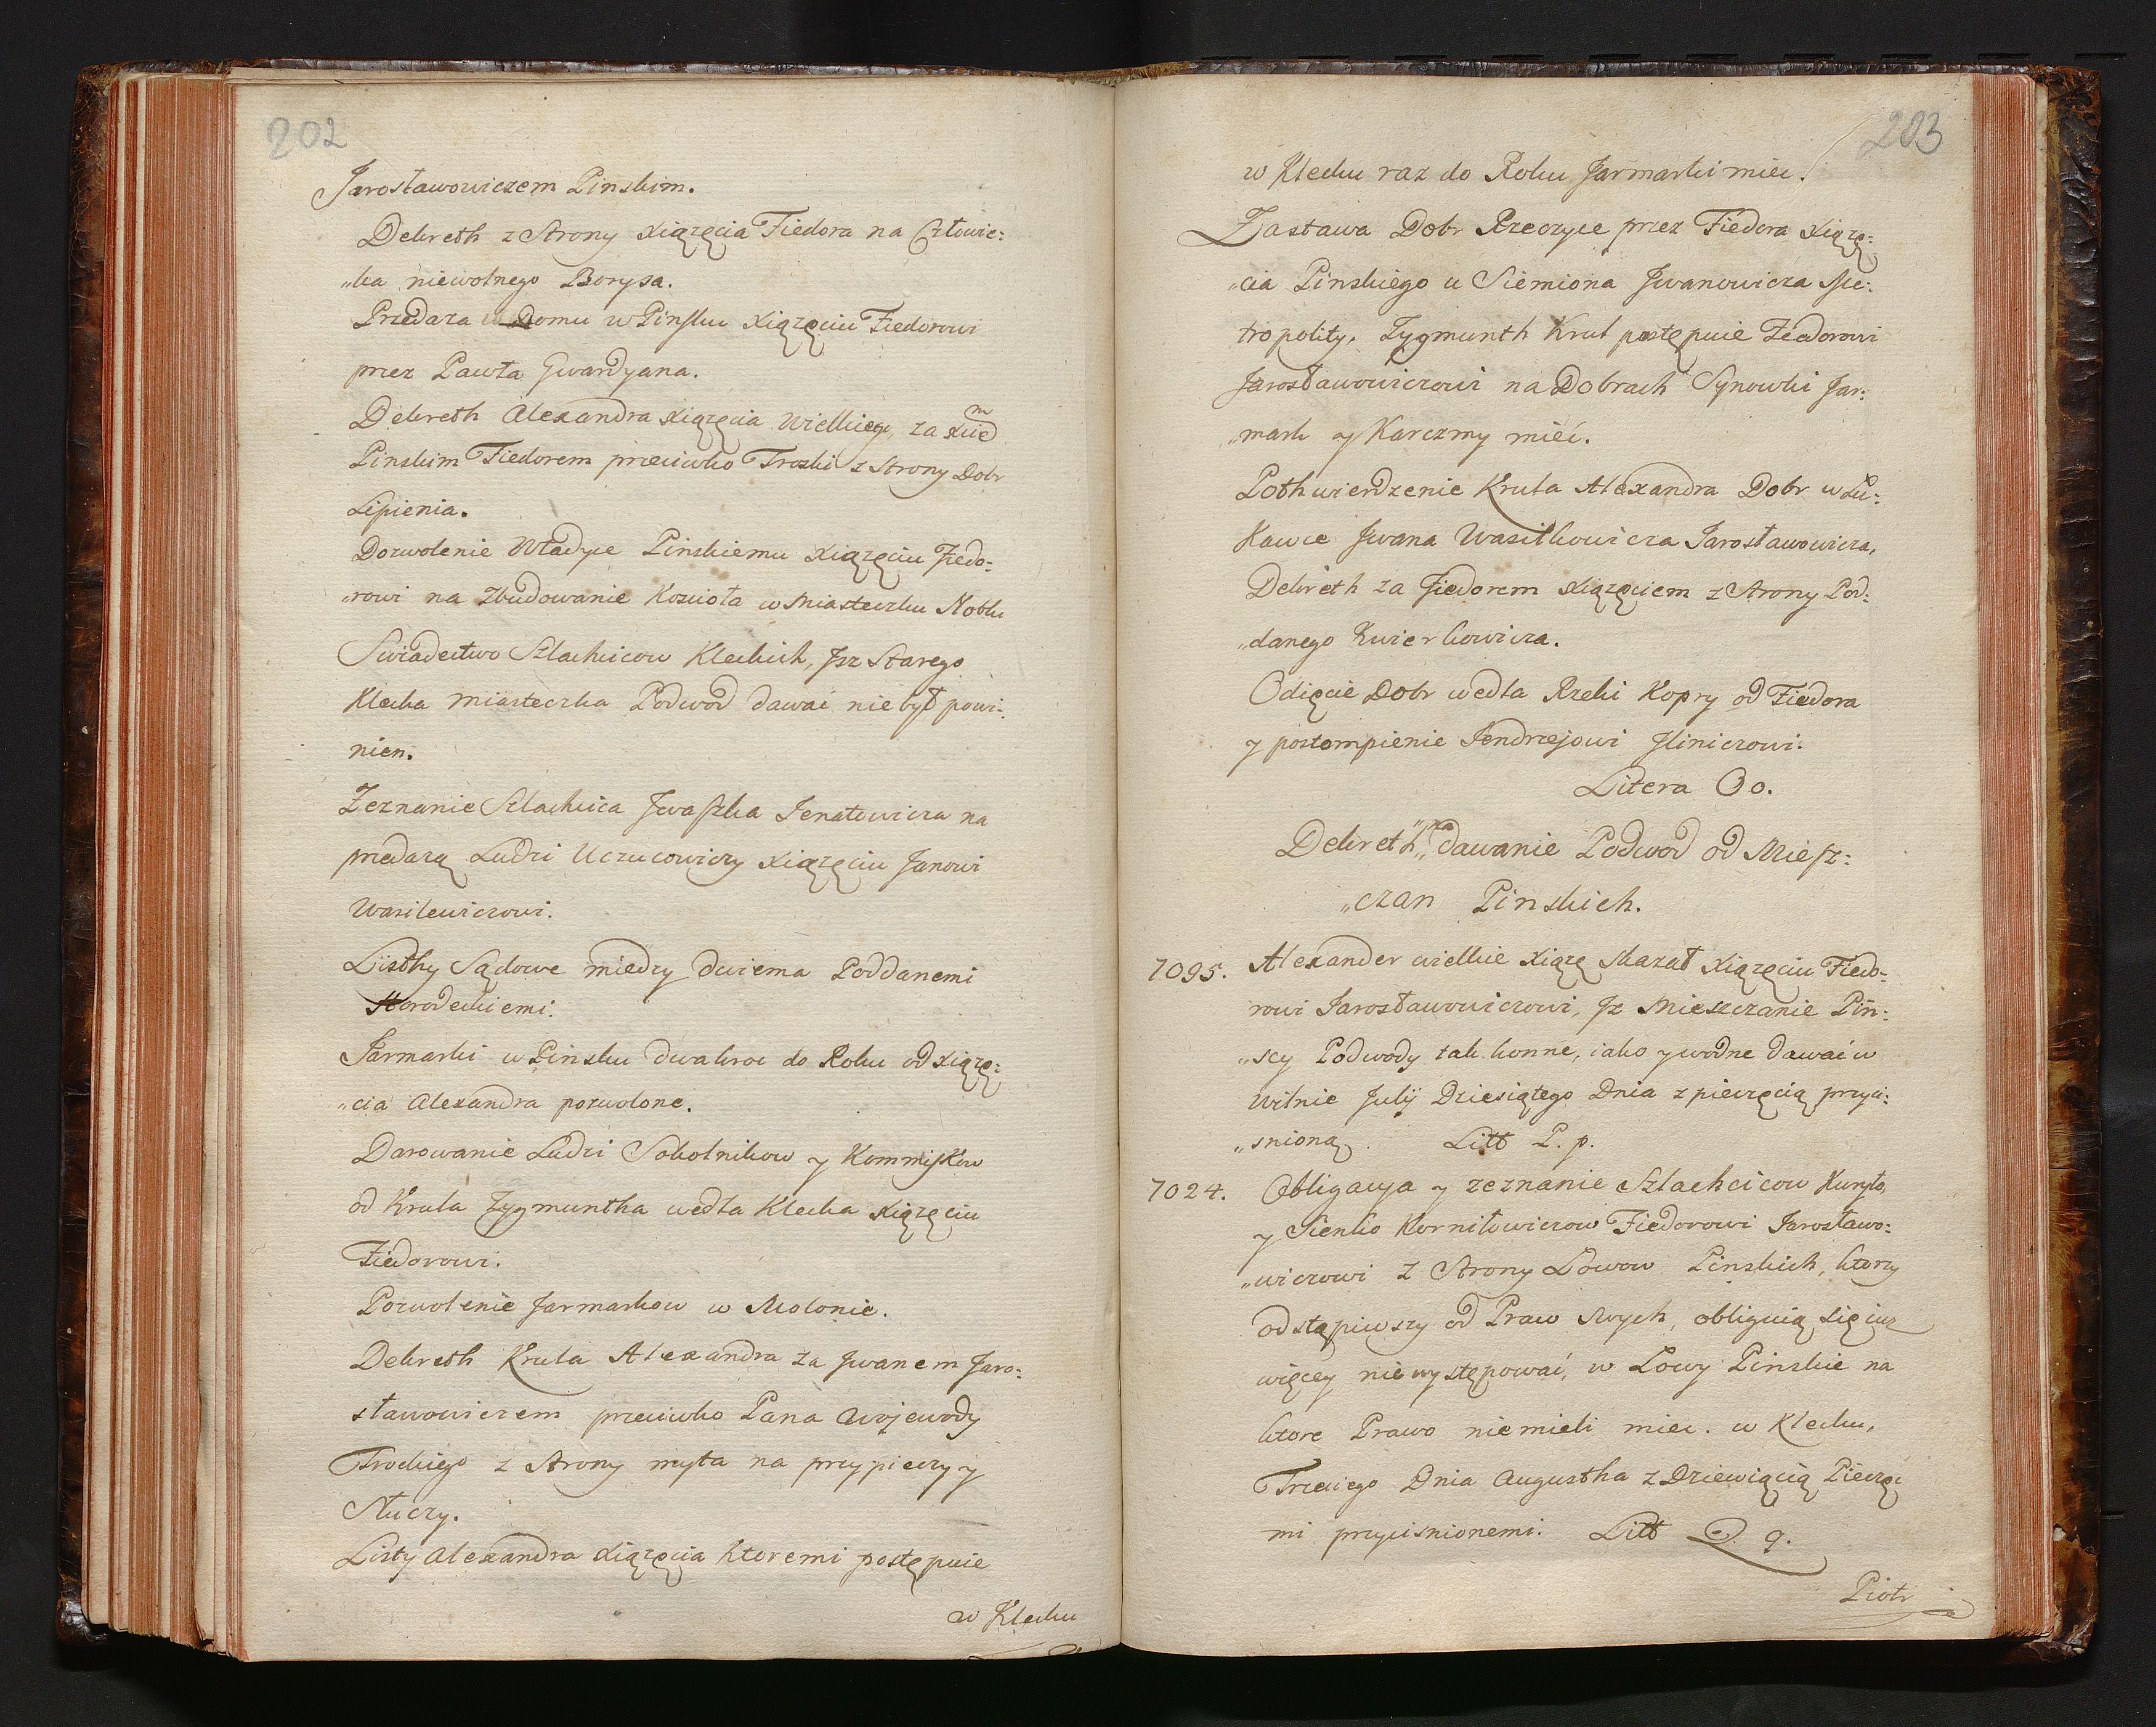 202
Jarosławowiczem Pinskim.
Dekreth z Strony Xiążęcia Fiedora na Człowie:
„ka niewolnego Borysa.
Przedaża Domu w Pinsku Xiążęciu Fiedorowi
przez Pawła Gwardyana.
Dekreth Alexandra Xiążęcia Wielkiego, za Xciem
Pinskim Fiedorem przeciwko Trozki z Strony Dobr
Lipienia.
Dozwolenie Władyce Pinskiemu Xiążęciu Fiedo:
„rowi na Zbudowanie Kosciola w Miasteczku Noblu
Swiadectwo Szlachcicow Kleckich, Jsz Starego
Klecka Miasteczka Podwod dawać nie był powi:
nien.
Zeznanie Szlachcica Jwaszka Jenatowicza na
przedażą Ludzi Uczucowiczy Xiążęciu Janowi
Wasilewiczowi.
Listhy Sądowe miedzy dwiema Poddanemi
Horodeckiemi.
Jarmarki w Pinsku dwakroc do Roku od Xiążę:
„cia Alexandra pozwolone.
Darowanie Ludzi Sokolnikow y Kommissow
od Krula Zygmuntha wedla Klecka Xiążęciu
Fiedorowi.
Pozwolenie Jarmarkow w Molonie.
Dekreth Krula Alexandra za Jwanem Jaro:
sławowiczem przeciwko Pana Wojewody
Trockiego z Strony myta na przypieczy y
Słuczy.
Listy Alexandra Xiążęcia ktoremi postępuie
w Klecku
203
w Klecku raz do Roku Jarmarki miec.
Zastawa Dobr Rzeczyce przez Fiedora Xiążę:
„cia Pinskiego u Siemiona Jwanowicza Me:
tropolity. Zygmunth Krul postępuie Fiedorowi
Jarosławowiczowi na Dobrach Synowki Jar:
„mark y Karczmy mieć.
Pothwierdzenie Krula Alexandra Dobr w Łu:
Kawce Jwana Wasilkowicza Jarosławowicza,
Dekreth za Fiedorem Xiążęciem z Strony Pod:
„danego Zwierkowicza.
Odięcie Dobr wedla Rzeki Kopry od Fiedora
y postompienie Jendrzejowi Jliniczowi.
Litera Oo.
Dekreth „na„ dawanie Podwod od Miesz:
„czan Pinskich.
7095. Alexander wielkie Xiążę Mazał Xiążęciu Fiedo:
rowi Jarosławowiczowi, Jz Mieszczanie Piń:
„scy Podwody tak konne, iako y wodne dawać w
Wilnie Julij Dziesiątego Dnia z pieczęcią przyci:
„snioną. Litt P. p.
7024. Obligacya y zeznanie Szlachcicow Kuryło,
y Sienko Korniłowiczow Fiedorowi Jarosławo:
„wiczowi z Strony Łowow Pinskich, ktorzy
odstąpiwszy od Praw Swych, obliguią się iuz
więcey nie występować, w Łowy Pinskie na
ktore Prawo nie mieli miec. w Klecku,
Trzeciego Dnia Augustha z Dziewiącią Pieczęc
mi przycisnionemi. Litt Q. q.
Piotr